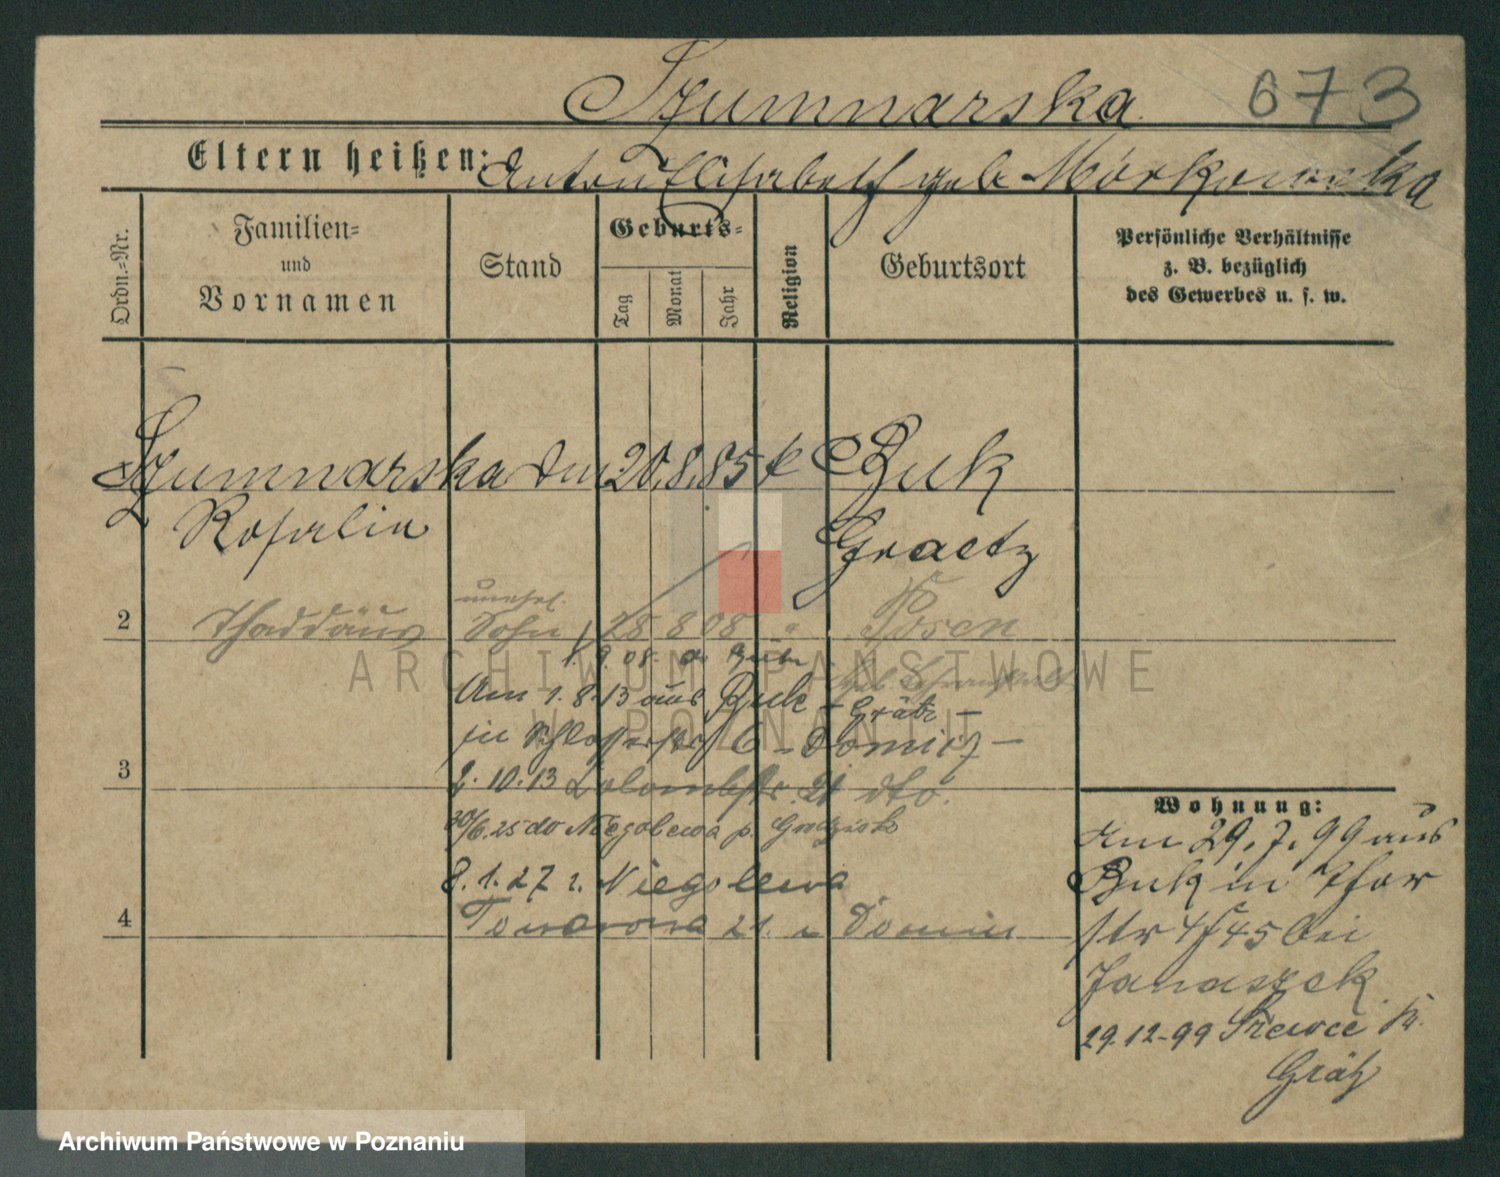 Szumnarska 673
Eltern heißen: Anton Elisabeth geb Morkowska
Ordn.-Nr.
Familien-
und
Vornamen
Stand
Geburts-
Tag
Monat
Jahr
Religion
Geburtsort
Persönliche Verhältnisse
z. B. bezüglich
des Gewerbes u. s. w.
Szumnarska 20. 8. 85 k Buk
Rosalie Graetz
unehel.
2 Thaddäus Sohn 28 8 08 " Posen
9. 08.
Am 1. 8. 13 aus Buk - Grätz -
in Schlosserstr 6 - Domin -
3
2. 10. 13 21 dto.
30/6.25 do Niegolewa p. Grodzisk
8. 1. 27 z. Niegolewa
4 21. Domin
Wohnung:
Am 29. 7. 99 aus
Buk in
str 45 bei
Janaszek
29.12-99
Grätz
ARCHIWUM PAŃSTWOWE
W POZNANIU
Archiwum Państwowe w Poznaniu